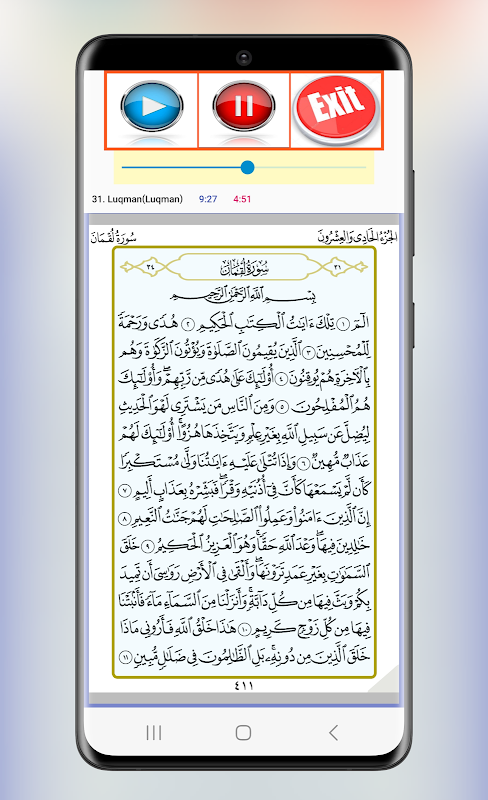 Exit
31. Luqman(Luqman) 9:27 4:51
سُورَةُ لُقْمَان الجُزْءُ الحَادِى وَالعِشْرُونَ
٣٤ سُورَةُ لُقْمَانَ ٣١
بِسْمِ ٱللَّهِ ٱلرَّحْمَٰنِ ٱلرَّحِيمِ
الٓمٓ ١ تِلْكَ ءَايَٰتُ ٱلْكِتَٰبِ ٱلْحَكِيمِ ٢ هُدًى وَرَحْمَةً
لِّلْمُحْسِنِينَ ٣ ٱلَّذِينَ يُقِيمُونَ ٱلصَّلَوٰةَ وَيُؤْتُونَ ٱلزَّكَوٰةَ وَهُم
بِٱلْءَاخِرَةِ هُمْ يُوقِنُونَ ٤ أُو۟لَٰٓئِكَ عَلَىٰ هُدًى مِّن رَّبِّهِمْ ۖ وَأُو۟لَٰٓئِكَ
هُمُ ٱلْمُفْلِحُونَ ٥ وَمِنَ ٱلنَّاسِ مَن يَشْتَرِى لَهْوَ ٱلْحَدِيثِ
لِيُضِلَّ عَن سَبِيلِ ٱللَّهِ بِغَيْرِ عِلْمٍ وَيَتَّخِذَهَا هُزُوًا ۚ أُو۟لَٰٓئِكَ لَهُمْ
عَذَابٌ مُّهِينٌ ٦ وَإِذَا تُتْلَىٰ عَلَيْهِ ءَايَٰتُنَا وَلَّىٰ مُسْتَكْبِرًا
كَأَن لَّمْ يَسْمَعْهَا كَأَنَّ فِىٓ أُذُنَيْهِ وَقْرًا ۖ فَبَشِّرْهُ بِعَذَابٍ أَلِيمٍ ٧
إِنَّ ٱلَّذِينَ ءَامَنُوا۟ وَعَمِلُوا۟ ٱلصَّٰلِحَٰتِ لَهُمْ جَنَّٰتُ ٱلنَّعِيمِ ٨
خَٰلِدِينَ فِيهَا ۖ وَعْدَ ٱللَّهِ حَقًّا ۚ وَهُوَ ٱلْعَزِيزُ ٱلْحَكِيمُ ٩ خَلَقَ
ٱلسَّمَٰوَٰتِ بِغَيْرِ عَمَدٍ تَرَوْنَهَا ۖ وَأَلْقَىٰ فِى ٱلْأَرْضِ رَوَٰسِىَ أَن تَمِيدَ
بِكُمْ وَبَثَّ فِيهَا مِن كُلِّ دَآبَّةٍ ۚ وَأَنزَلْنَا مِنَ ٱلسَّمَآءِ مَآءً فَأَنۢبَتْنَا
فِيهَا مِن كُلِّ زَوْجٍ كَرِيمٍ ١٠ هَٰذَا خَلْقُ ٱللَّهِ فَأَرُونِى مَاذَا
خَلَقَ ٱلَّذِينَ مِن دُونِهِۦ ۚ بَلِ ٱلظَّٰلِمُونَ فِى ضَلَٰلٍ مُّبِينٍ ١١
٤١١